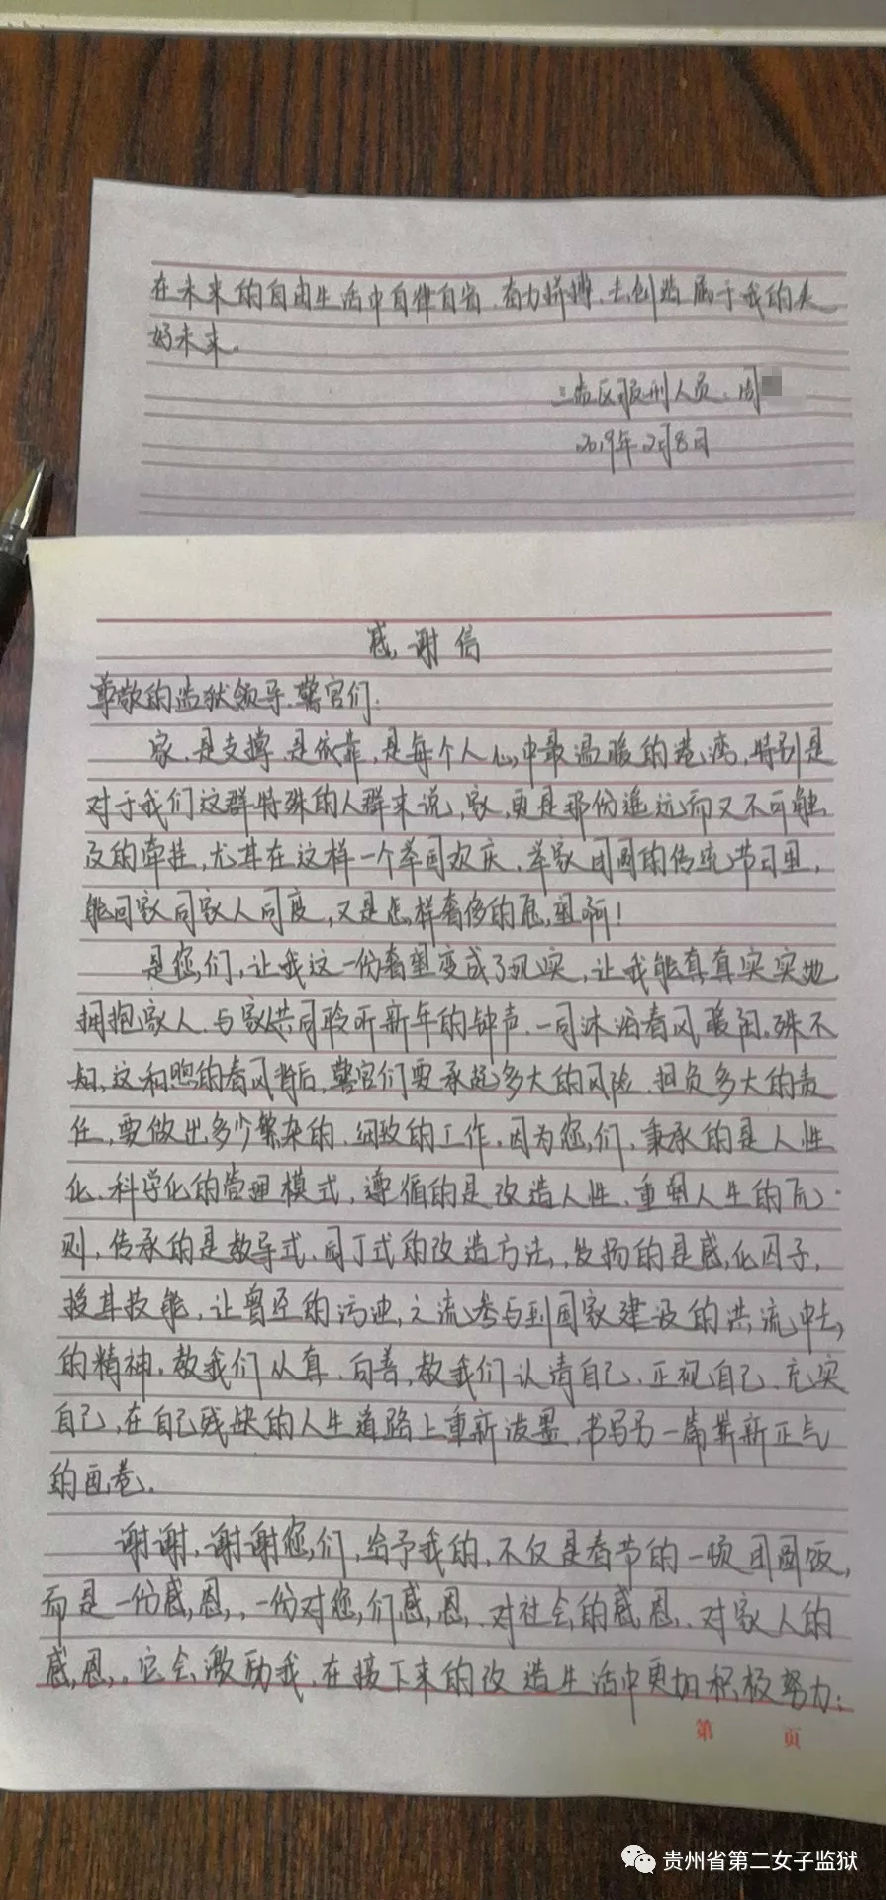 感谢信
尊敬的监狱领导、警官们：
家,是支撑,是依靠,是每个人心中最温暖的港湾,特别是
对于我们这群特殊的人群来说,家,更是那份遥远而又不可触
及的牵挂,尤其在这样一个举国欢庆、举家团圆的传统节日里,
能回家同家人同度,又是怎样奢侈的愿望啊！
是您们,让我这一份奢望变成了现实,让我能真真实实地
拥抱家人、与家人共同聆听新年的钟声,一同沐浴春风暖阳。殊不
知,这和煦的春风背后,警官们要承起多大的风险、担负多大的责
任,要做出多少繁杂的、细致的工作。因为您们,秉承的是人性
化、科学化的管理模式,遵循的是改造人性、重塑人生的原
则,传承的是教导式、园丁式的改造方法,发扬的是感化因子,
授其技能,让曾经的污浊之流参与到国家建设的洪流中去,
的精神。教我们从真、向善,教我们认清自己、正视自己、充实
自己,在自己残缺的人生道路上重新泼墨,书写另一篇崭新正气
的画卷。
谢谢,谢谢您们,给予我的,不仅是春节的一顿团圆饭,
而是一份感恩,一份对您们感恩、对社会的感恩、对家人的
感恩。它会激励我,在接下来的改造生活中更加积极努力；
第 页
在未来的自由生活中自律自省、奋力拼搏、去创造属于我的美
好未来。
三监区服刑人员：周
2019年2月8日
贵州省第二女子监狱